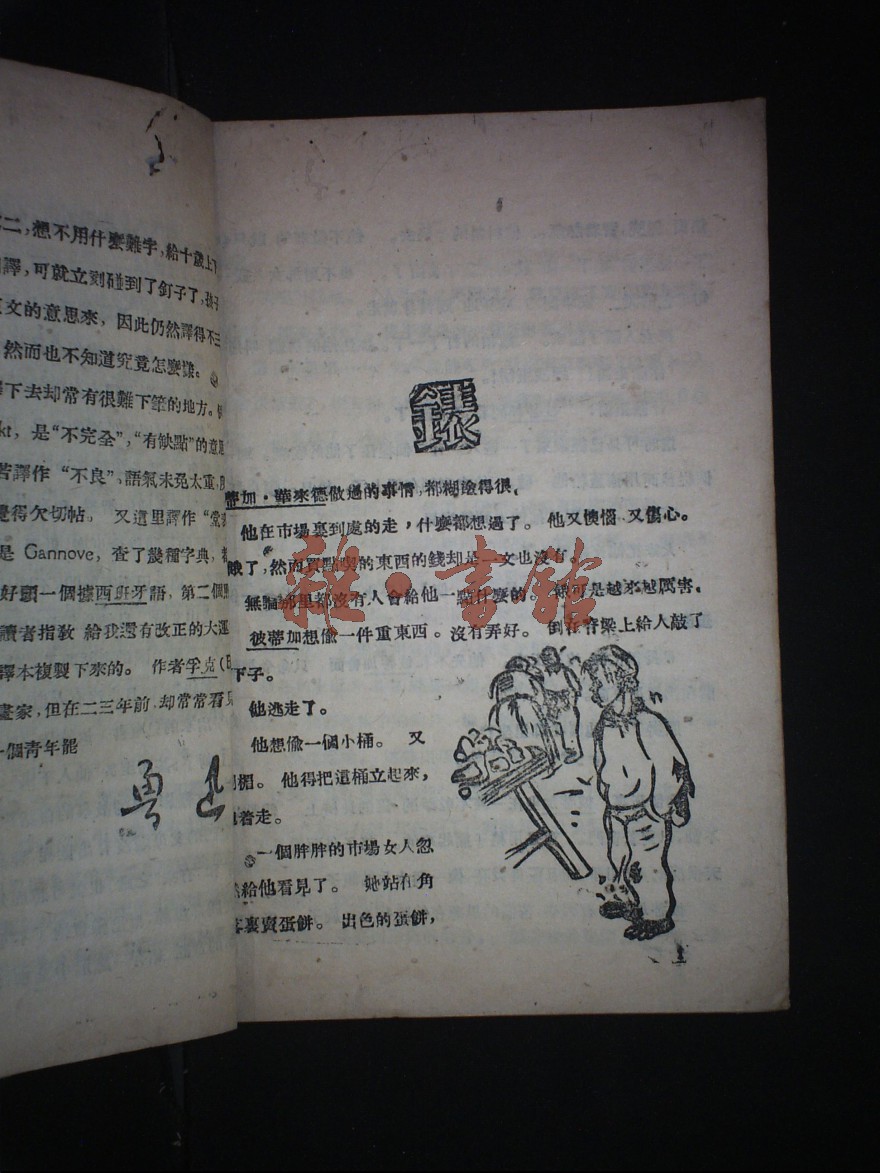 二，想不用什麼難字，給十歲上下
譯，可就立刻碰到了釘子了，孩子
文的意思來，因此仍然譯得不三
然而也不知道究竟怎麼樣。
下去却常有很難下筆的地方。
kt，是“不完全”，“有缺點”的意思
若譯作“不良”，語氣未免太重，
覺得欠切帖， 又這里譯作“堂
是 Gannove，查了幾種字典，
好頭一個據西班牙語，第二個
讀者指敎 給我還有改正的大運
譯本複製下來的。 作者孚克
畫家，但在二三年前，却常常看見
一個靑年罷
魯迅
錶
蒂加·華來德做過的事情，都糊塗得很，
他在市場裏到處的走，什麼都想過了。 他又懊惱 又傷心。
餓了，然而買點喫的東西的錢却是一文也沒有
無論那里都沒有人會給他一點什麼的。 餓可是越來越厲害。
彼蒂加想偷一件重東西。 沒有弄好。 倒在脊梁上給人敲了
下子。
他逃走了。
他想偷一個小桶。 又
楣。 他得把這桶立起來，
着走。
一個胖胖的市場女人忽
然給他看見了。 她站在角
裏賣蛋餅。 出色的蛋餅，
1
雜·書館